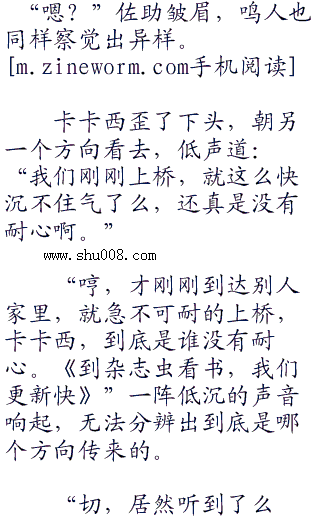 “嗯？”佐助皱眉，鸣人也
同样察觉出异样。
[m.zineworm.com手机阅读]
卡卡西歪了下头，朝另
一个方向看去，低声道：
“我们刚刚上桥，就这么快
沉不住气了么，还真是没有
耐心啊。”
www.shu008.com
“哼，才刚刚到达别人
家里，就急不可耐的上桥，
卡卡西，到底是谁没有耐
心。《到杂志虫看书，我们
更新快》”一阵低沉的声音
响起，无法分辨出到底是哪
个方向传来的。
“切，居然听到了么